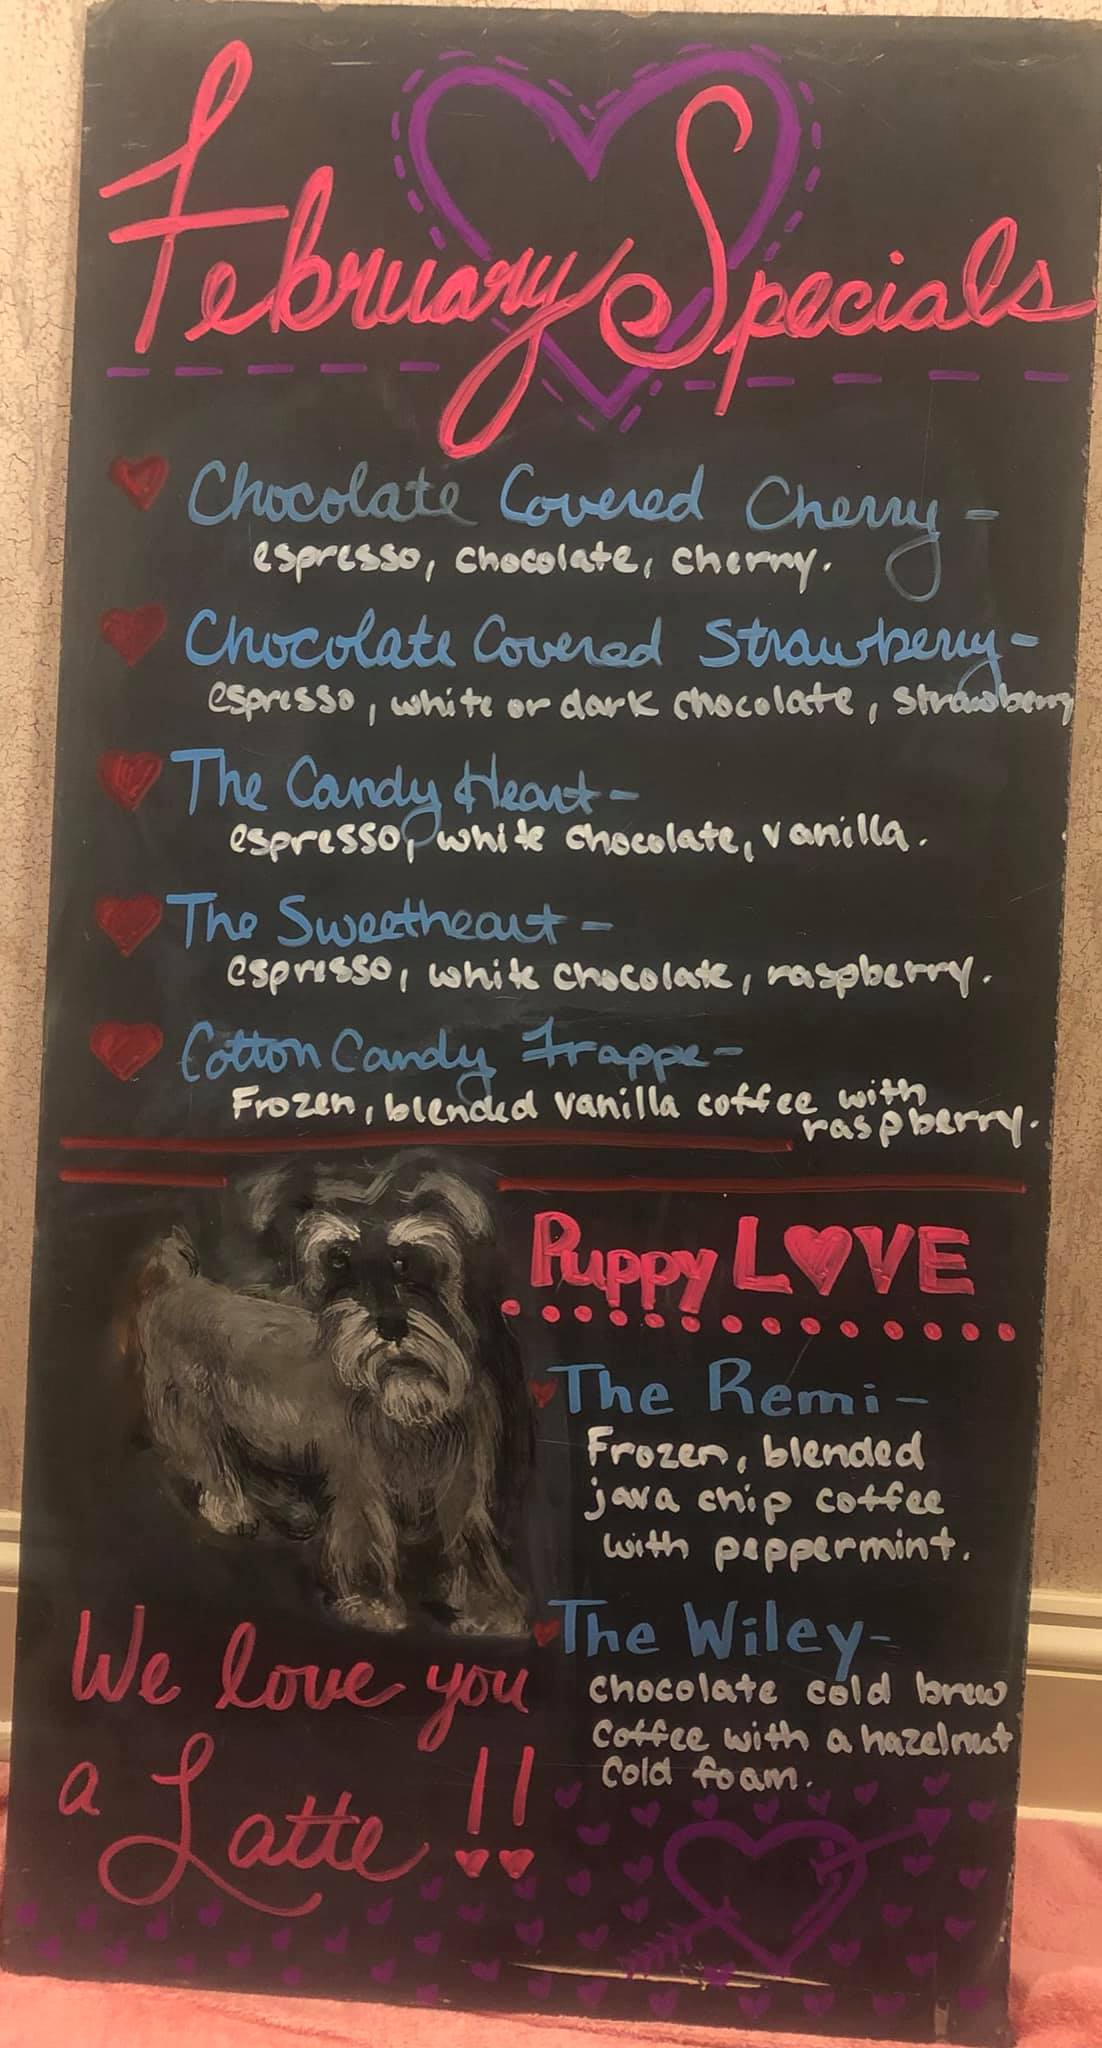 February Specials
Chocolate Covered Cherry -
espresso, chocolate, cherry.
Chocolate Covered Strawberry -
espresso, white or dark chocolate, strawberry
The Candy Heart -
espresso, white chocolate, vanilla.
The Sweetheart -
espresso, white chocolate, raspberry.
Cotton Candy Frappe -
Frozen, blended vanilla coffee with
raspberry.
Puppy LOVE
The Remi -
Frozen, blended
java chip coffee
with peppermint.
The Wiley -
chocolate cold brew
coffee with a hazelnut
cold foam.
We love you
a Latte !!